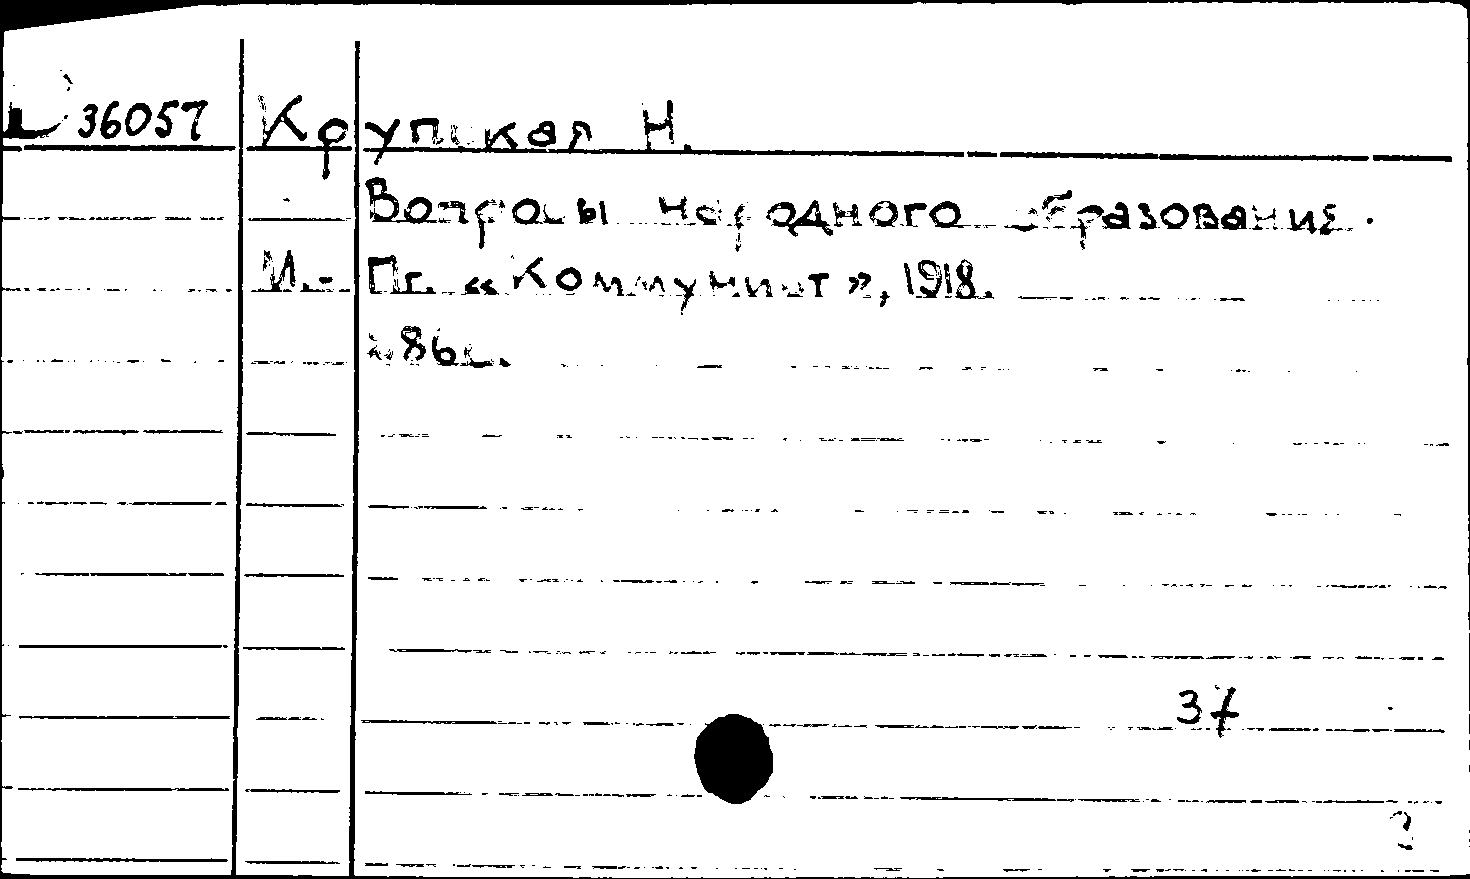 36057 Крупская Н.
Вопросы народного образования.
М.-Пг. «Коммунист», 1918.
86с.
37